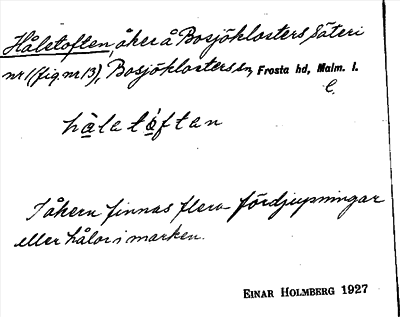 Håletoften, åker å Bosjöklosters Säteri
nr 1 (fig nr 13), Bosjöklosters sn, Frosta hd, Malm. l.
C.
håletoftan
I åkern finnas flera fördjupningar
eller hålor i marken.
EINAR HOLMBERG 1927